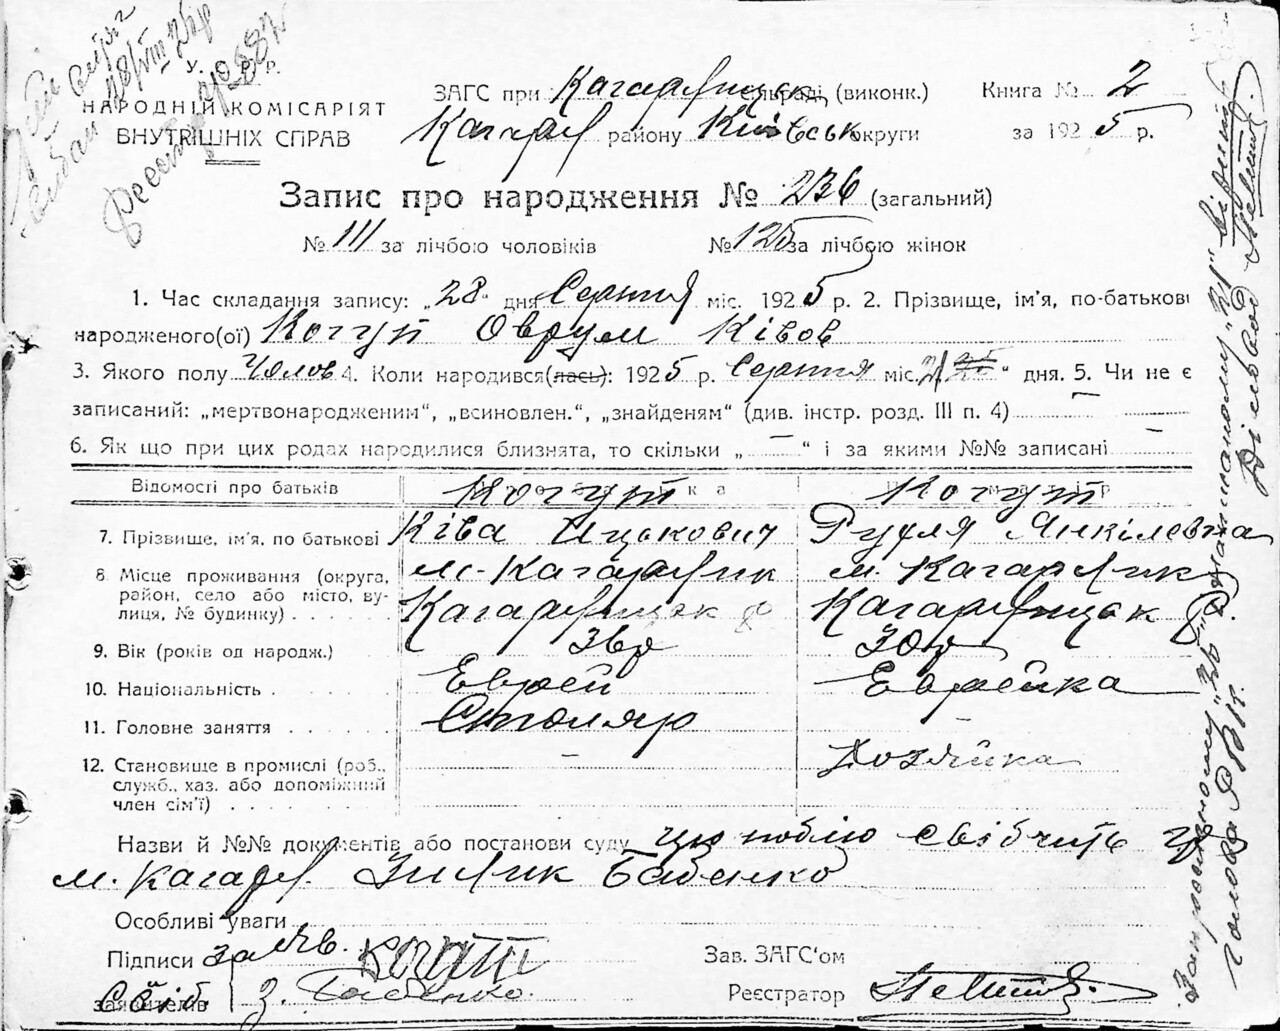 У. С. Р. Р.
НАРОДНІЙ КОМІСАРІЯТ
ВНУТРІШНІХ СПРАВ
ЗАГС при Кагарлицьк сельраді (виконк.) Книга № 2
Кагарл району Київськ округи за 1925 р.
Запис про народження № 236 (загальний)
№ 111 за лічбою чоловіків № 125 за лічбою жінок
1. Час складання запису: „28" дня Серпня міс. 1925 р. 2. Прізвище, ім'я, по-батькові
народженого(ої) Когут Оврум Ківов
3. Якого полу Чолов 4. Коли народився(лась): 1925 р. Серпня міс. 21 " дня. 5. Чи не є
записаний: „мертвонародженим", „всиновлен.", „знайденям" (див. інстр. розд. III п. 4) —
6. Як що при цих родах народилися близнята, то скільки „ — " і за якими №№ записані —
Відомості про батьків Когут Когут
7. Прізвище, ім'я, по батькові Ківа Ицькович Рухля Янкілевна
8. Місце проживання (округа, район, село або місто, вулиця, № будинку) м. Кагарлик м. Кагарлик
Кагарлицьк р Кагарлицьк р.
9. Вік (років од народж.) 36р 30р
10. Національність Еврей Еврейка
11. Головне заняття Столяр
12. Становище в промислі (роб., служб., хаз. або допоміжний член сім'ї) — Хозяйка
Назви й №№ документів або постанови суду цю подію свідчить гр
м. Кагарл. Зилик Бабенко
Особливі уваги
Підписи заяв. Когут Зав. ЗАГС'ом
заявителів Свід. З. Бабенко Реєстратор